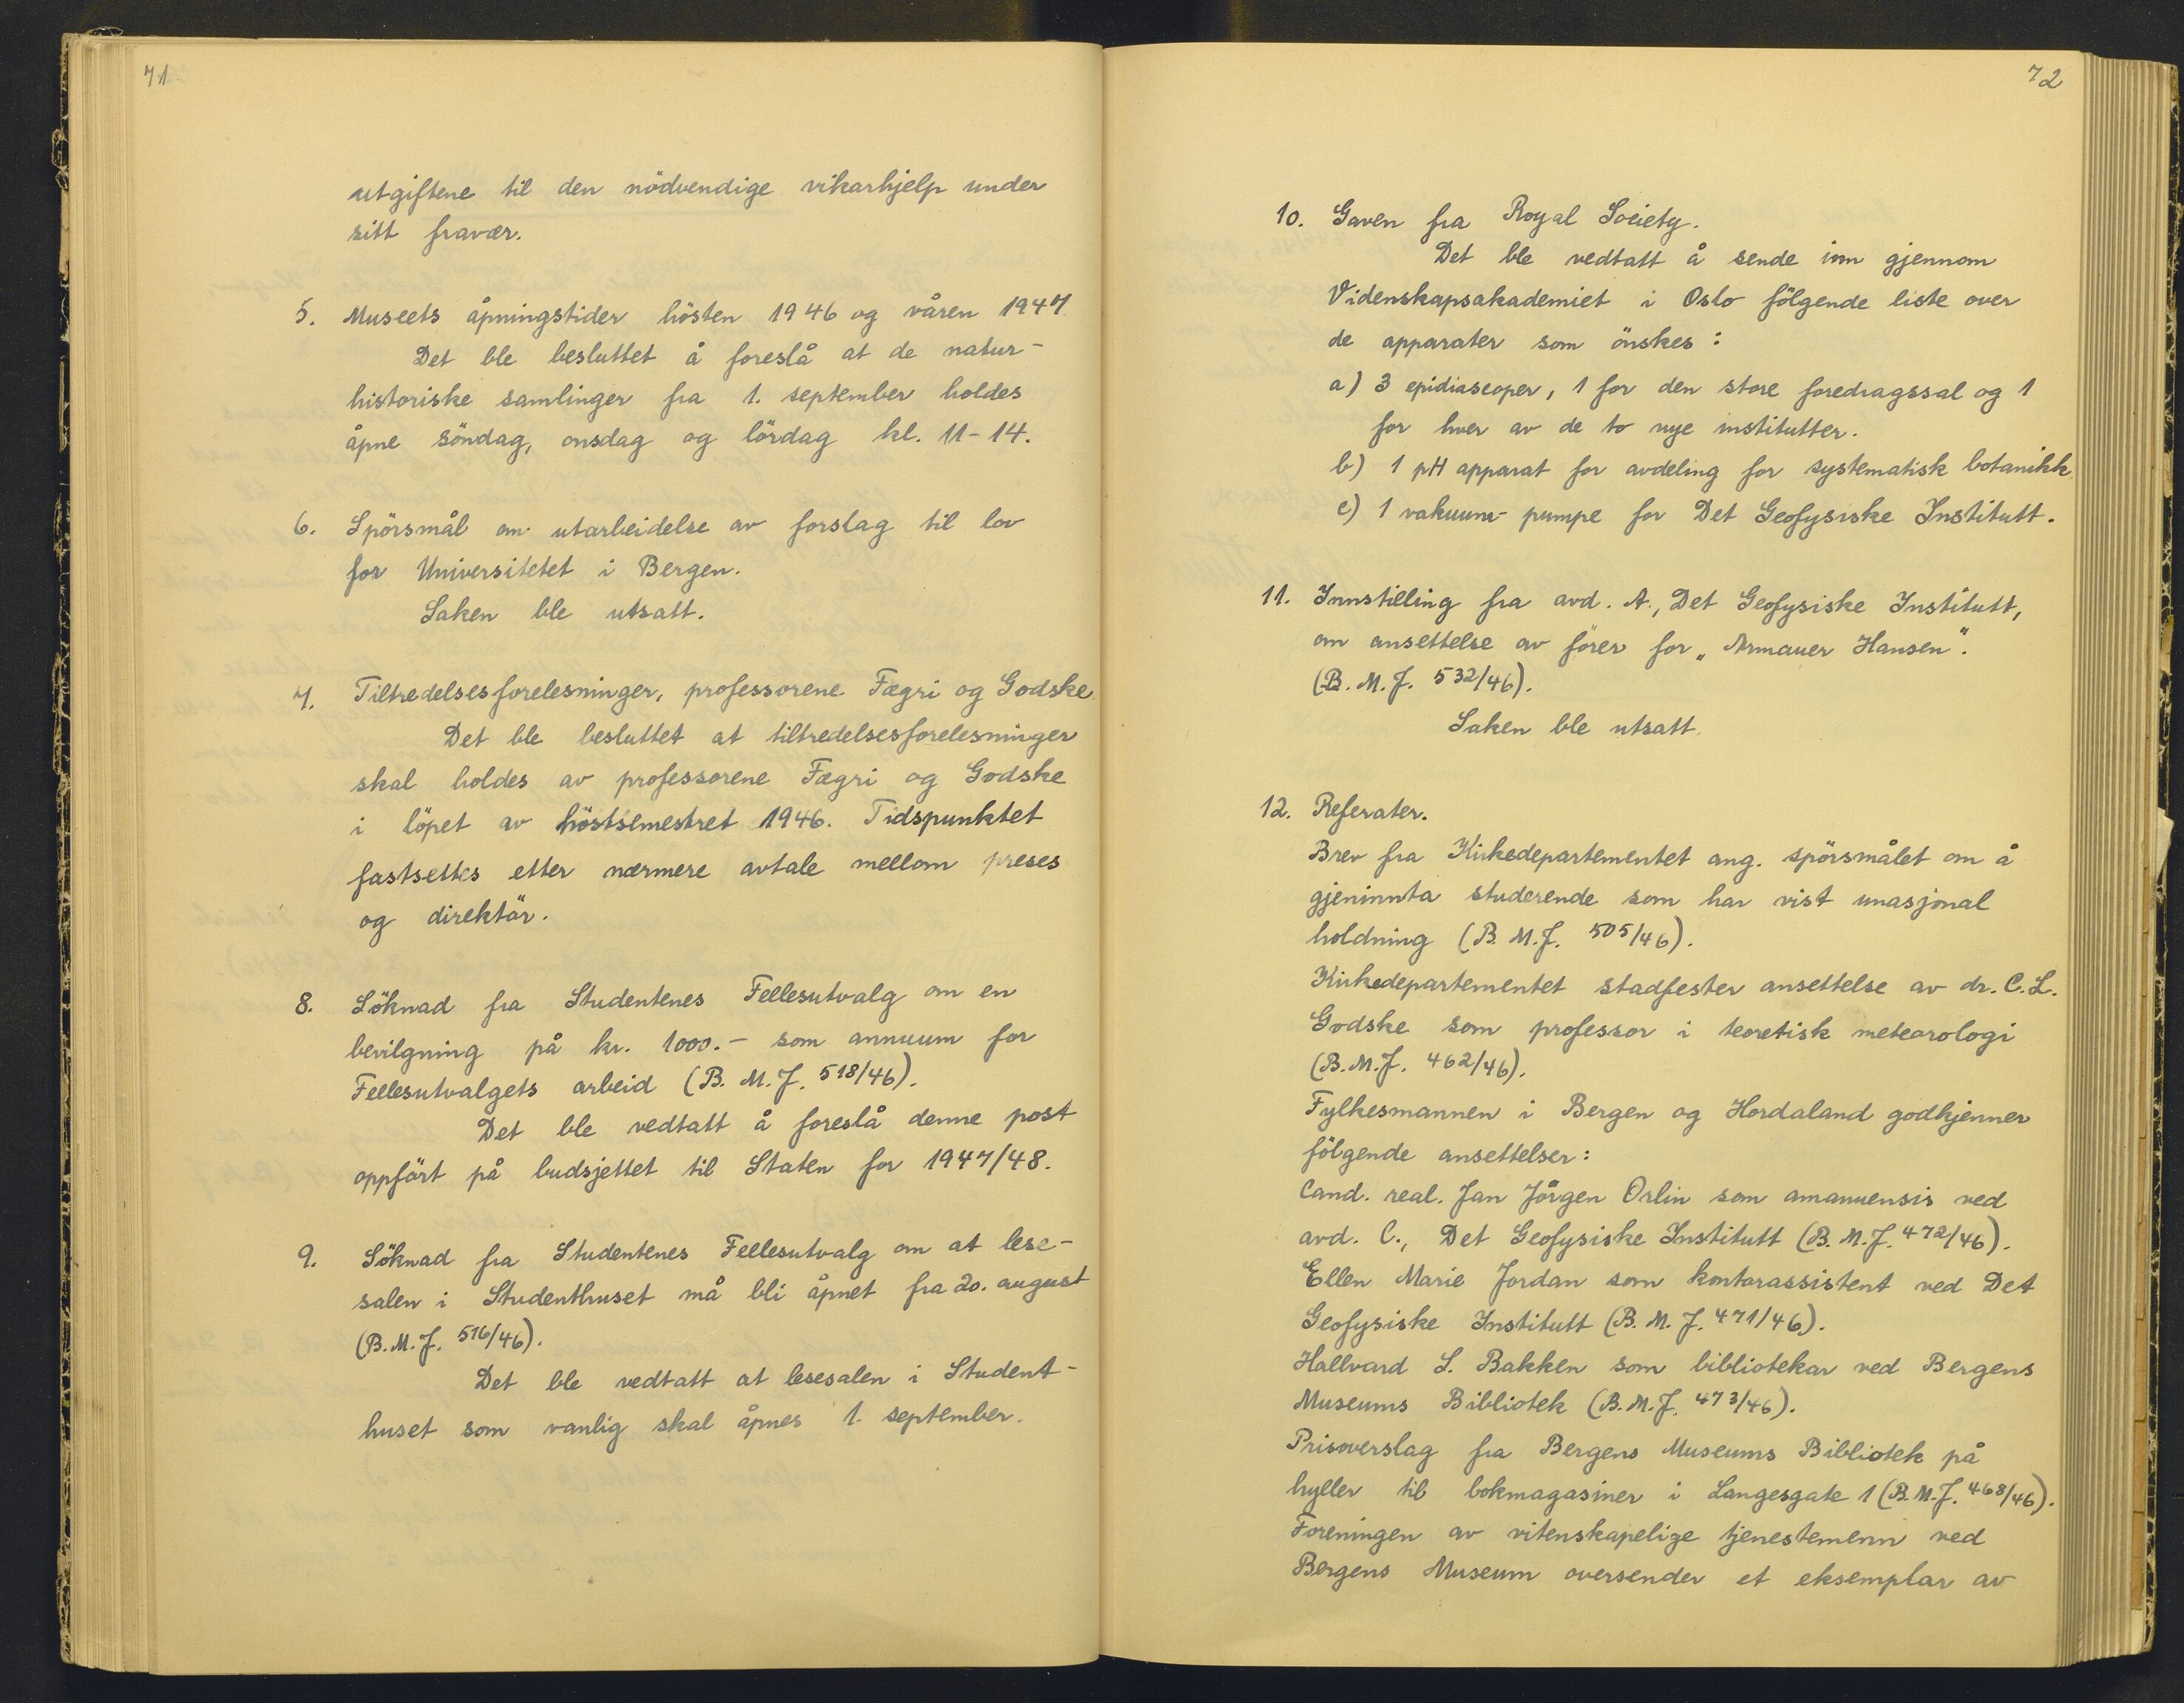 71
utgiftene til den nödvendige vikarhjelp under
sitt fravær.
5. Museets åpningstider hösten 1946 og våren 1947.
Det ble besluttet å foreslå at de natur-
historiske samlinger fra 1. september holdes
åpne söndag, onsdag og lördag kl. 11-14.
6. Spörsmål om utarbeidelse av forslag til lov
for Universitetet i Bergen.
Saken ble utsatt.
7. Tiltredelsesforelesninger, professorene Fægri og Godske.
Det ble besluttet at tiltredelsesforelesninger
skal holdes av professorene Fægri og Godske
i löpet av höstsemestret 1946. Tidspunktet
fastsettes etter nærmere avtale mellom preses
og direktör.
8. Söknad fra Studentenes Fellesutvalg om en
bevilgning på kr. 1000.- som annuum for
Fellesutvalgets arbeid (B. M. J. 518/46).
Det ble vedtatt å foreslå denne post
oppfört på budsjettet til Staten for 1947/48.
9. Söknad fra Studentenes Fellesutvalg om at lese-
salen i Studenthuset må bli åpnet fra 20. august
(B. M. J. 516/46).
Det ble vedtatt at lesesalen i Student-
huset som vanlig skal åpnes 1. september.
72
10. Gaven fra Royal Society.
Det ble vedtatt å sende inn gjennom
Videnskapsakademiet i Oslo fölgende liste over
de apparater som önskes:
a) 3 epidiascoper, 1 for den store foredragssal og 1
for hver av de to nye institutter.
b) 1 pH apparat for avdeling for systematisk botanikk
c) 1 vakuum-pumpe for Det Geofysiske Institutt.
11. Innstilling fra avd. A., Det Geofysiske Institutt,
om ansettelse av förer for „Armauer Hansen".
(B. M. J. 532/46).
Saken ble utsatt.
12. Referater.
Brev fra Kirkedepartementet ang. spörsmålet om å
gjeninnta studerende som har vist unasjonal
holdning (B. M. J. 505/46).
Kirkedepartementet stadfester ansettelse av dr. C. L.
Godske som professor i teoretisk meteorologi
(B. M. J. 462/46).
Fylkesmannen i Bergen og Hordaland godkjenner
fölgende ansettelser:
Cand. real. Jan Jörgen Orlin som amanuensis ved
avd. C., Det Geofysiske Institutt (B. M. J. 472/46).
Ellen Marie Jordan som kontorassistent ved Det
Geofysiske Institutt (B. M. J. 471/46).
Hallvard S. Bakken som bibliotekar ved Bergens
Museums Bibliotek (B. M. J. 473/46).
Prisoverslag fra Bergens Museums Bibliotek på
hyller til bokmagasiner i Langesgate 1 (B. M. J. 468/46).
Foreningen av vitenskapelige tjenestemenn ved
Bergens Museum oversender et eksemplar av